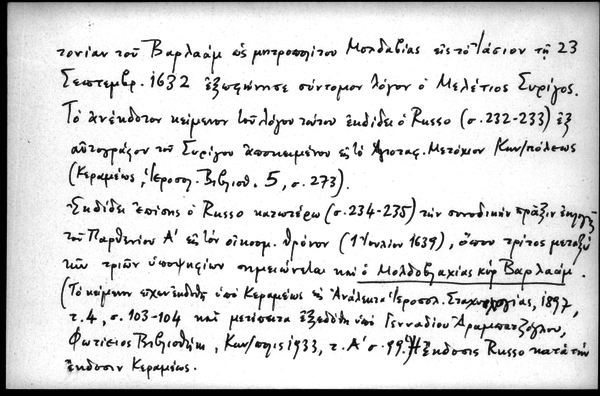 τονίαν τοῦ Βαρλαάμ ὡς μητροπολίτου Μολδαβίας εἰς τό Ἰάσιον τῇ 23
Σεπτεμβρ. 1632 ἐξεφώνησε σύντομον λόγον ὁ Μελέτιος Συρίγος.
Τό ἀνέκδοτον κείμενον τοῦ λόγου τούτου ἐκδίδει ὁ Russo (σ. 232-233) ἐξ
αὐτογράφου τοῦ Συρίγου ἀποκειμένου εἰς τό Ἁγιοταφ. Μετόχιον Κων/πόλεως
(Κεραμέως, Ἱεροσολ. Βιβλιοθ. 5, σ. 273).
Ἐκδίδει ἐπίσης ὁ Russo κατωτέρω (σ. 234-235) τήν συνοδικήν πρᾶξιν ἐκλογῆς
τοῦ Παρθενίου Α' εἰς τόν οἰκουμ. θρόνον (1 Ἰουλίου 1639), ὅπου τρίτος μεταξύ
τῶν τριῶν ὑποψηφίων σημειώνεται καί ὁ Μολδοβλαχίας κύρ Βαρλαάμ.
(Τό κείμενον εἶχεν ἐκδοθῆ ὑπό Κεραμέως εἰς Ἀνάλεκτα Ἱεροσολ. Σταχυολογίας, 1897,
τ. 4, σ. 103-104 καί μετέπειτα ἐξεδόθη ὑπό Γενναδίου Ἀραμπατζόγλου,
Φωτίειος Βιβλιοθήκη, Κων/πολις 1933, τ. Α' σ. 99.) Ἡ ἔκδοσις Russo κατά τήν
ἔκδοσιν Κεραμέως.